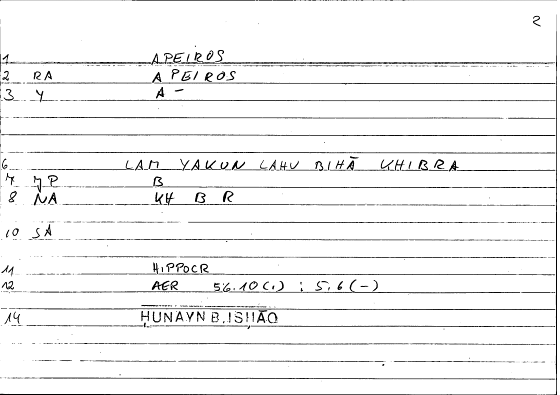 2
1 APEIROS
2 RA APEIROS
3 Y A -
6 LAM YAKUN LAHU BIHĀ KHIBRA
7 JP B
8 NA KH B R
10 SA
11 HIPPOCR
12 AER 56.10(.) ; 5.6(-)
14 ḤUNAYN B.ISḤĀQ